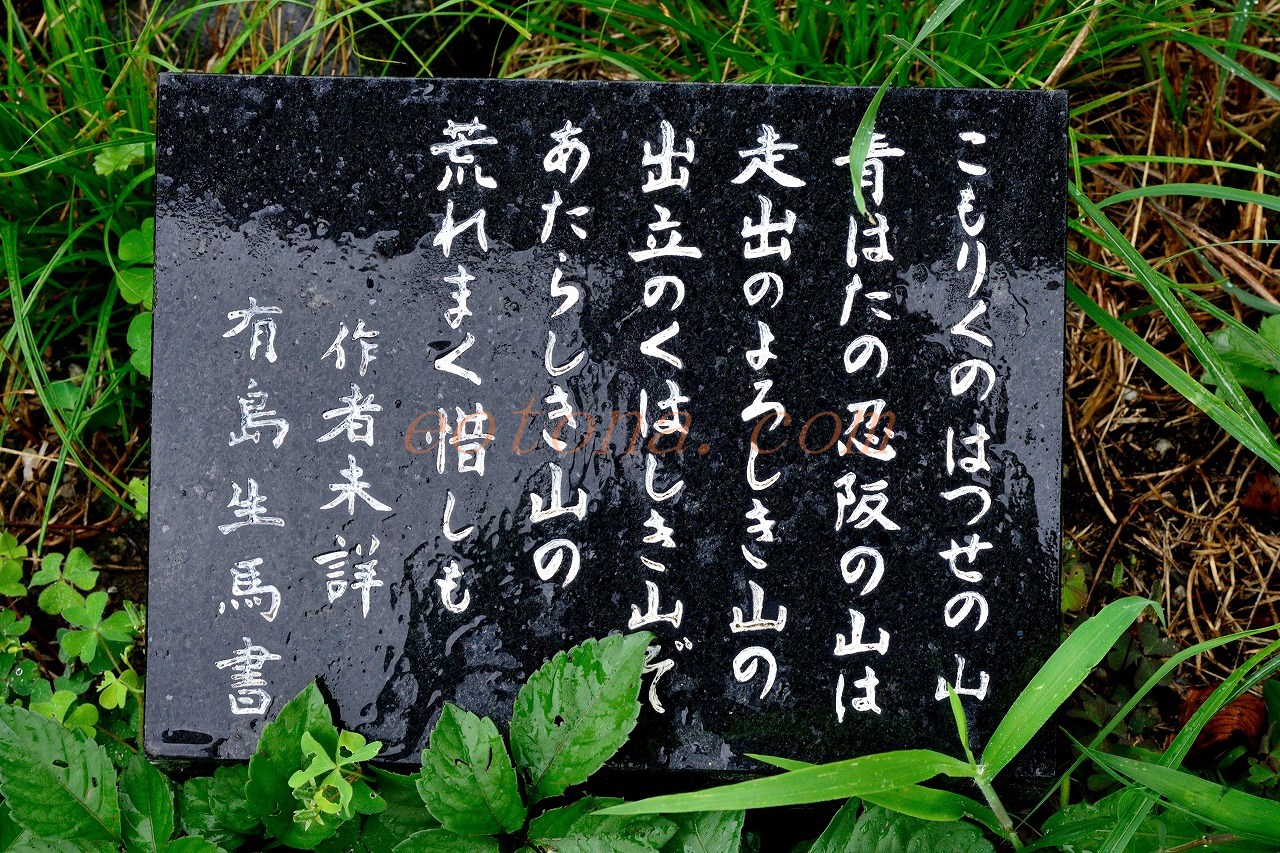 こもりくのはつせの山
青はたの忍阪の山は
走出のよろしき山の
出立のくはしき山ぞ
あたらしき山の
荒れまく惜しも
作者未詳
有島生馬書
eotona.com